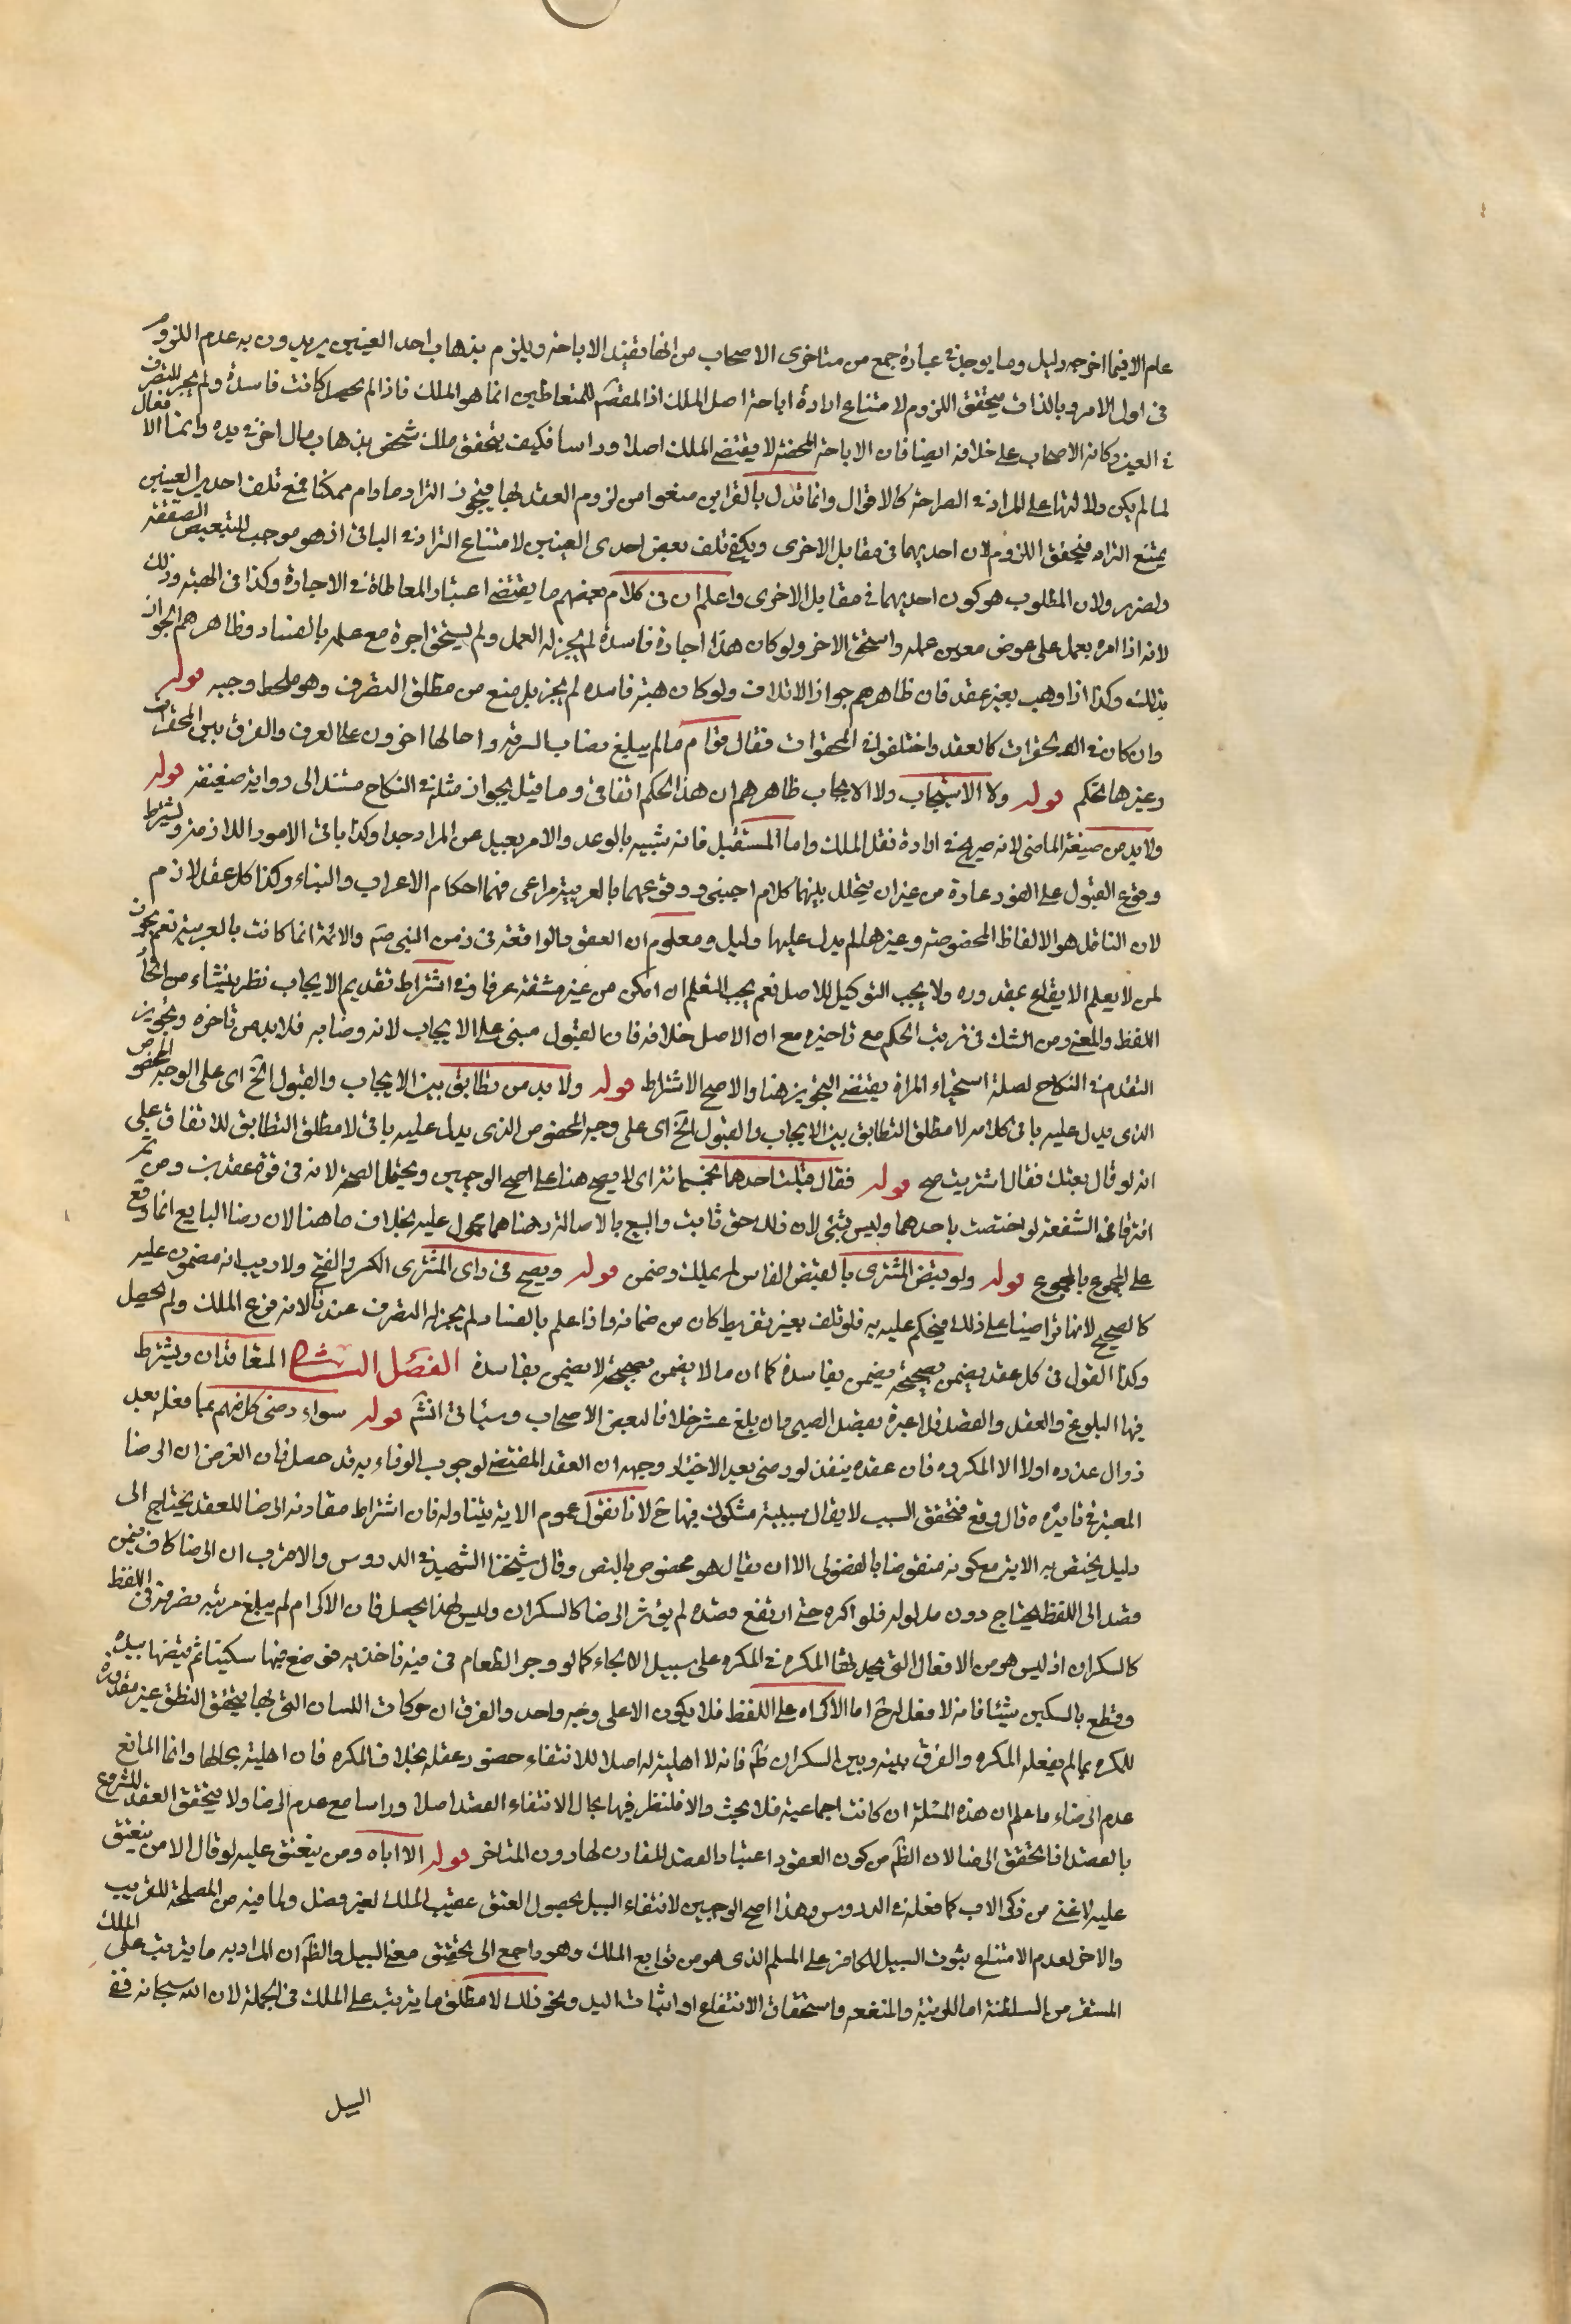 عام الا فيما اخرجه دليل وما يوجد فى عبارة جمع من متاخرى الاصحاب من انها تفيد الاباحة ويلزم بذهاب احد العينين يريدون به عدم اللزوم
فى اول الامر وبالذات يتحقق اللزوم لامتناع ارادة اباحة اصل الملك اذ المقصم للمتعاطيين انما هو الملك فاذا لم يحصل كانت فاسدة ولم يجز التصرف
فى العين وكافة الاصحاب على خلافه ايضا فان الاباحة المحضة لا يقتضى الملك اصلا وراسا فكيف يتحقق ملك شخص بذهاب مال اخر فى يده وانما الافعال
لما لم يكن دلالتها على المراد فى الصراحة كالاقوال وانما تدل بالقراين منعوا من لزوم العقد بها فيجوز التراد ما دام ممكنا فمع تلف احدى العينين
يمتنع التراد فيتحقق اللزوم لان احديهما فى مقابل الاخرى ويكفى تلف بعض احدى العينين لامتناع التراد فى الباقى اذ هو موجب لتبعيض الصفقة
والضرر ولان المطلوب هو كون احديهما فى مقابل الاخرى واعلم ان فى كلام بعضهم ما يقتضى اعتبار المعاطاة فى الاجارة وكذا فى الهبة وذلك
لانه اذا امره بعمل على عوض معين عمله واستحق الاخر ولو كان هذا اجارة فاسدة لم يجز له العمل ولم يستحق اجرة مع علمه بالفساد وظاهرهم الجواز
بذلك وكذا اذا وهب بغير عقد فان ظاهرهم جواز الاتلاف ولو كان هبة فاسده لم يجز بل منع من مطلق التصرف وهو ملحظ وجيه قوله
وان كان فى المحقرات كالعقد واختلفوا فى المحقرات فقال قوام ما لم يبلغ نصاب السرقة واحالها اخرون على العرف والفرق بين المحقرات
وغيرها تحكم قوله ولا الاستيجاب ولا الايجاب ظاهرهم ان هذا الحكم اتفاقى وما قيل بجواز مثله فى النكاح مستند الى رواية ضعيفة قوله
ولا بد من صيغة الماضى لانه صريح فى ارادة نقل الملك واما المستقبل فانه شبيه بالوعد والامر بعيد عن المراد جدا وكذا باقى الامور اللازمة ويشترط
وقوع القبول على الفور عادة من غير ان يتخلل بينهما كلام اجنبى ووقوعهما بالعربية مراعى فيهما احكام الاعراب والبناء وكذا كل عقد لازم
لان الناقل هو الالفاظ المخصوصة وغيرها لم يدل عليها دليل ومعلوم ان العقود الواقعة فى زمن النبى صم والائمة انما كانت بالعربية نعم يجوز
لمن لا يعلم الايقاع بمقدوره ولا يجب التوكيل للاصل نعم يجب التعلم ان امكن من غير مشقة عرفا وفى اشتراط تقديم الايجاب نظر ينشاء من اتحاد
اللفظ والمعنى ومن الشك فى ترتب الحكم مع تاخيره مع ان الاصل خلافه فان القبول مبنى على الايجاب لانه رضا به فلا بد من تاخره وتجويز
التقدم فى النكاح لصلة استحياء المراة يقتضى التجويز هنا والاصح الاشتراط قوله ولا بد من تطابق بين الايجاب والقبول الخ اى على الوجه المخصوص
الذى يدل عليه باقى كلامه لا مطلق التطابق بين الايجاب والقبول الخ اى على وجه المخصوص الذى يدل عليه باقى لا مطلق التطابق للاتفاق على
انه لو قال بعتك فقال اشتريت صح قوله فقال قبلت احدهما بخمسمائة اى لا يصح هنا على اصح الوجهين ويحتمل الصحة لانه فى قوة عقدين ومن ثم
افترقا فى الشفعة لو اختصت باحدهما وليس بشئ لان ذلك حق ثابت والبيع بالاصالة رضاهما محمول عليه بخلاف ما هنا لان رضا البايع انما وقع
على المجموع بالمجموع قوله ولو قبض المشترى بالقبض الفاسد لم يملك وضمن قوله ويصح فى راى المشترى الكسر والفتح ولا ريب انه مضمون عليه
كالصحيح لانهما تراضيا على ذلك فيحكم عليه به فلو تلف بغير تفريط كان من ضمانه واذا علم بالفساد لم يجز له التصرف عندنا لانه فرع الملك ولم يحصل
وكذا القول فى كل عقد يضمن بصحيحة يضمن بفاسدة كما ان ما لا يضمن بصحيحة لا يضمن بفاسدة الفصل الثانى المتعاقدان ويشترط
فيها البلوغ والعقل والقصد فلا عبرة بقصد الصبى وان بلغ عشر خلافا لبعض الاصحاب وسياتى انشم قوله سواء رضى كل منهم بما فعله بعد
زوال عذره اولا الا المكره فان عقده ينفذ لو رضى بعد الاختيار وجهه ان العقد المقتضى لوجوب الوفاء به قد حصل فان الغرض ان الرضا
المعتبر فى تاثيره قال وقع فيتحقق السبب لا يقال سببية مشكوك فيها ح لانا نقول عموم الاية يتناوله فان اشتراط مقارنة الرضا للعقد يحتاج الى
دليل يختص به الاية مع كونه منقوضا بالفضولى الا ان يقال هو مخصوص بالنص وقال شيخنا الشهيد فى الدروس والاقرب ان الرضا كاف فيمن
قصد الى اللفظ يحتاج دون مدلوله فلو اكره حتى ارتفع قصده لم يؤثر الرضا كالسكران وليس لهذا يحصل فان الاكراه لم يبلغ مرتبة يضر قصده فى اللفظ
كالسكران اذ ليس هو من الافعال التى يحدثها المكره فى المكره على سبيل الالجاء كما لو وجر الطعام فى فيه فاخذ يده فوضع فيها سكينا ثم قبضها بيده
وقطع بالسكين شيئا فانه لا فعل له ح اما الاكراه على اللفظ فلا يكون الا على وجه واحد والفرق ان حركات اللسان التى بها يتحقق النطق غير مقدورة
للمكره بما لم يفعله المكره والفرق بينه وبين السكران ظم فانه لا اهلية له اصلا للانتفاء حضور عقله بخلاف المكره فان اهليته بحالها وانما المانع
عدم الرضاء ما علم ان هذه المسئلة ان كانت اجماعية فلا بحث والا فلنظر فيها مجال لانتفاء القصد اصلا وراسا مع عدم الرضا ولا يتحقق العقد المشروع
بالقصد اذا تحقق الرضا لان الظم من كون العقود اعتبار القصد المقارن لها دون المتاخر قوله الا اباه ومن ينعتق عليه لو قال الا من ينعتق
عليه لاغنى من ذكر الاب كما فعله فى الدروس وهذا اصح الوجهين لانتفاء السبيل بحصول العتق عقيب الملك لغير فصل ولما فيه من المصلحة للقريب
والاخر لعدم الامتناع ثبوت السبيل للكافر على المسلم الذى هو من توابع الملك وهو راجع الى تحقيق معنى السبيل والظم ان المراد به ما يترتب على الملك
المستقر من السلطنة اما للرقبة والمنفعه واستحقاق الانتفاع او اثبات اليد ونحو ذلك لا مطلق ما يترتب على الملك فى الجملة لان الله سبحانه نفى
السبيل